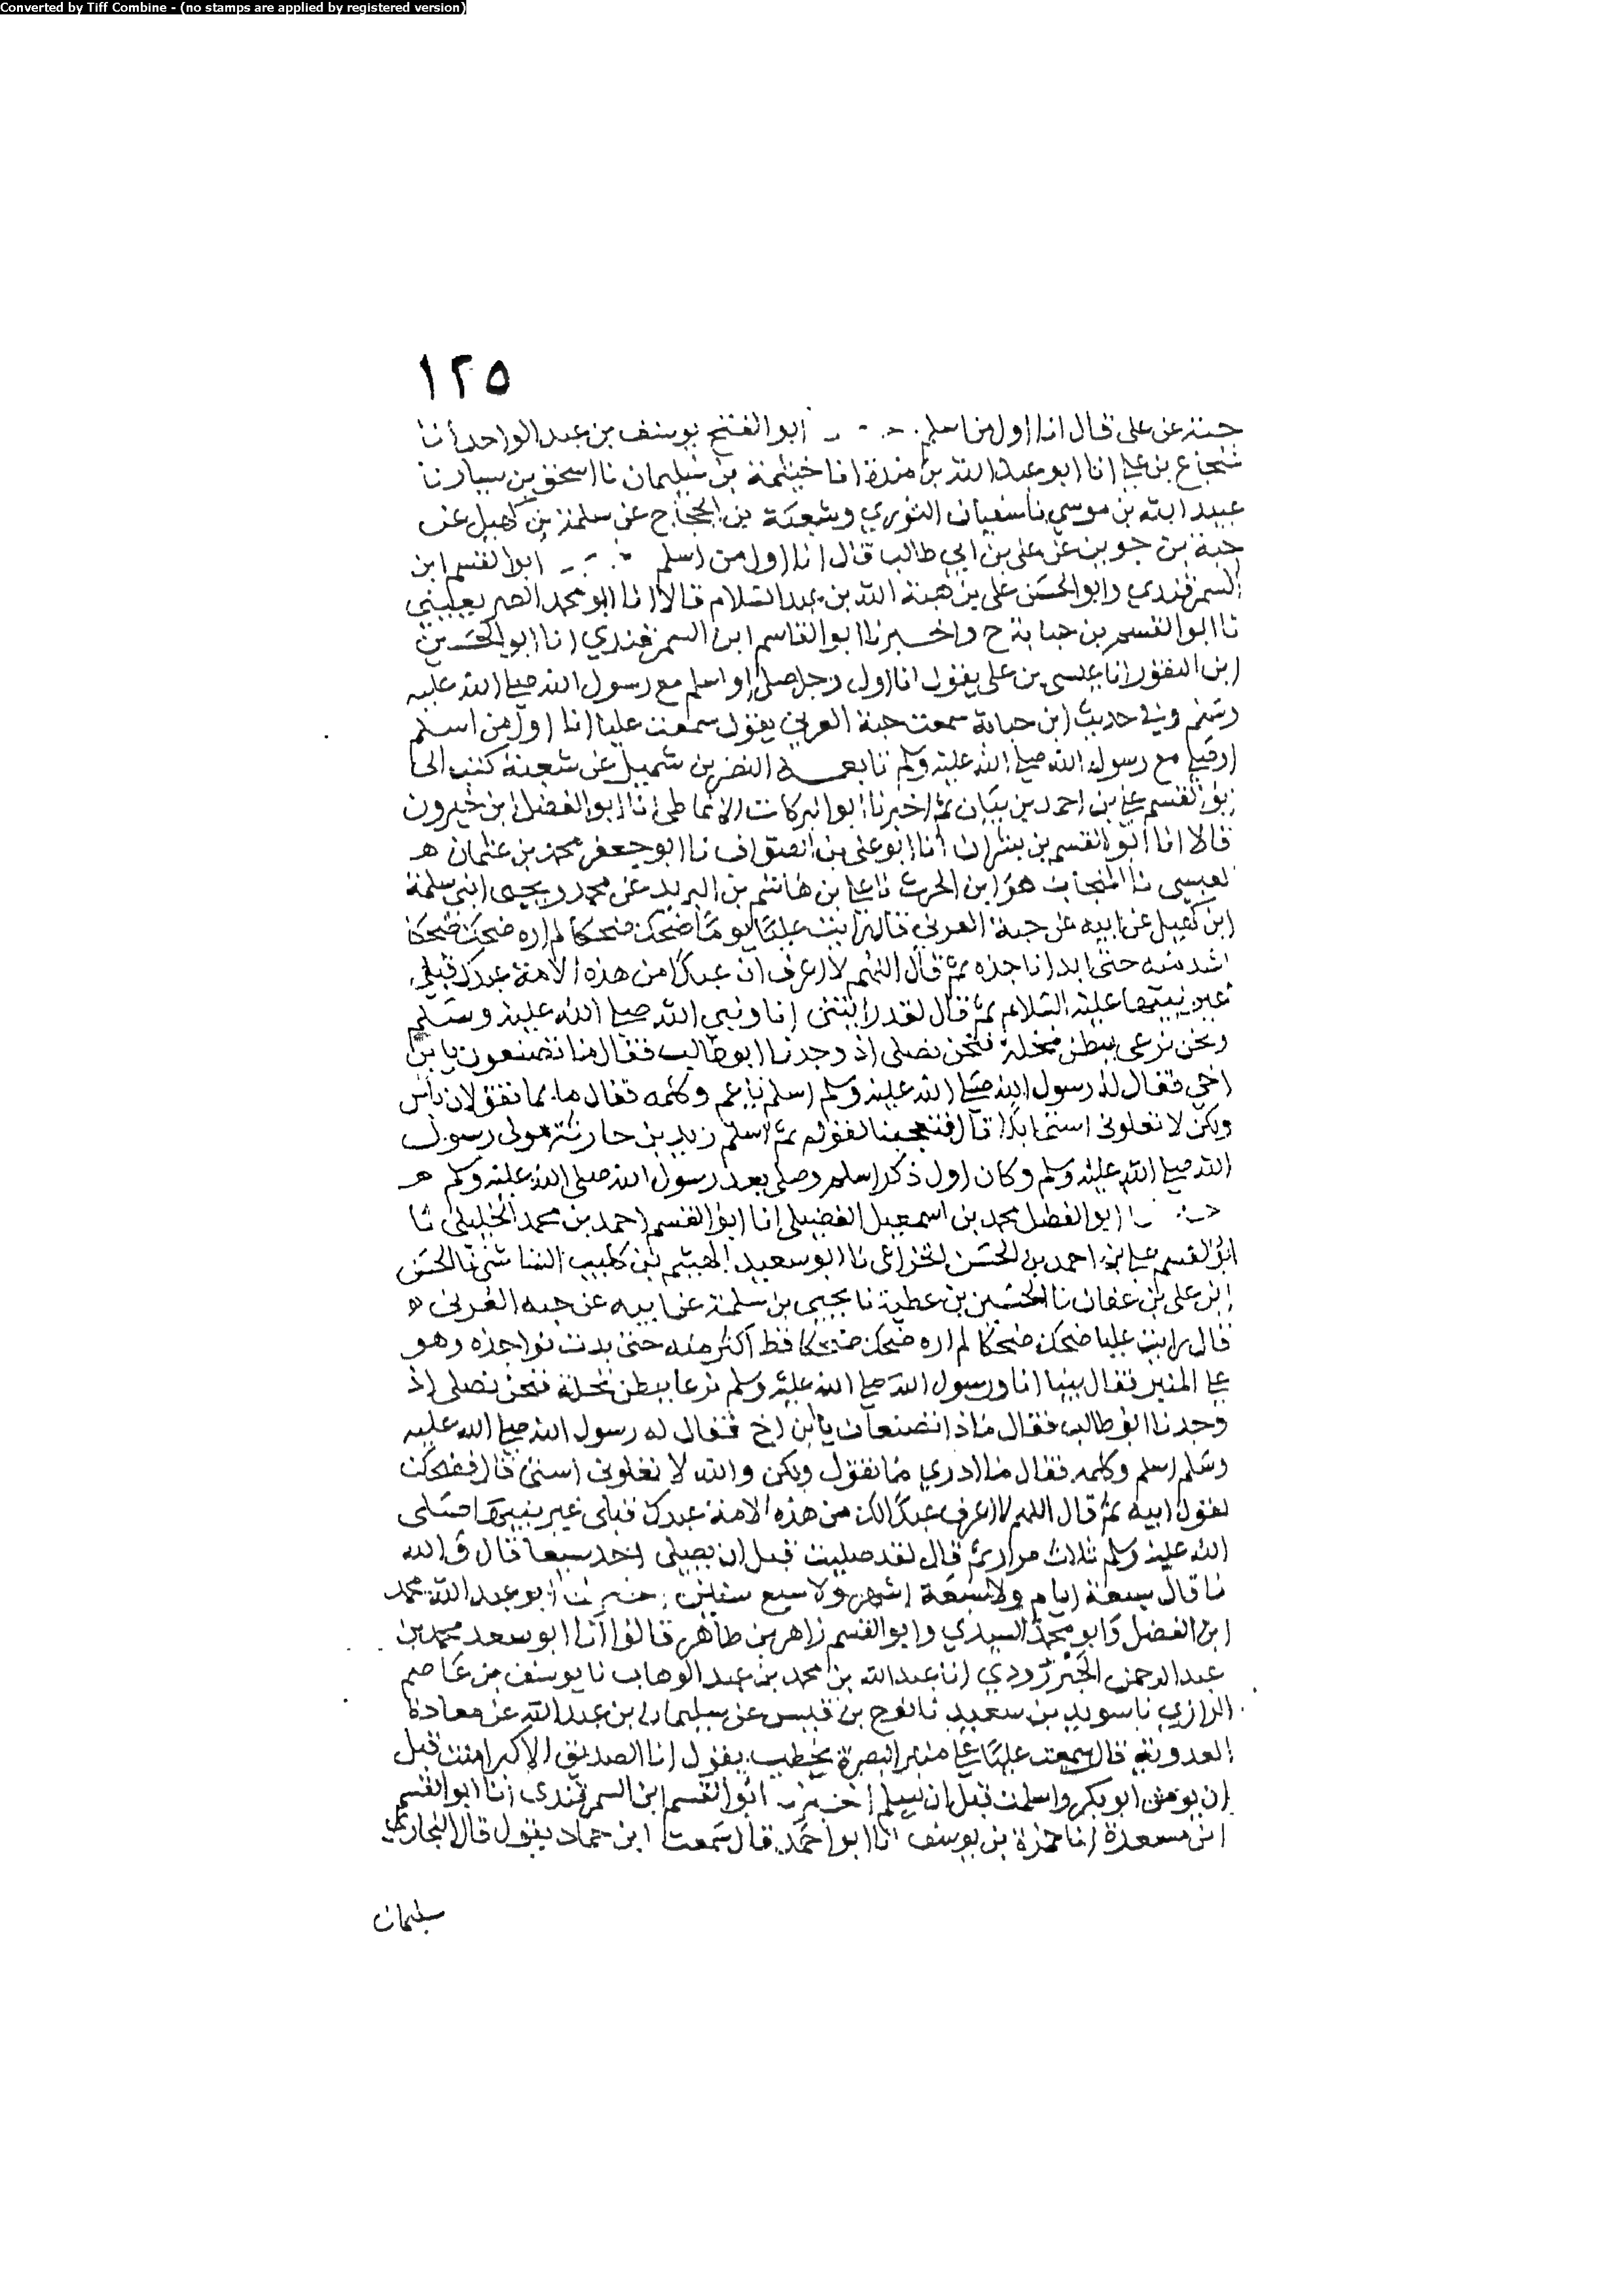 Converted by Tiff Combine - (no stamps are applied by registered version)
١٢٥
حبة عن على قال انا اول من اسلم ابو الفتح يوسف بن عبد الواحد أنا
شجاع بن علي انا ابو عبد الله بن مندة انا خيثمة بن سليمان نا اسحق بن سيار نا
عبيد الله بن موسى نا سفيان الثوري وشعبة بن الحجاج عن سلمة بن كهيل عن
حبة بن جوين عن على بن ابي طالب قال انا اول من اسلم ابو القسم ابن
السمرقندي وابو الحسن على بن هبة الله بن عبد السلام قالا انا ابو محمد الصريفيني
نا ابو القسم بن حبابة ح واخبرنا ابو القاسم ابن السمرقندي انا ابو الحسين
ابن النقور انا عيسى بن على يقول انا اول رجل صلى او اسلم مع رسول الله صلى الله عليه
وسلم وفي حديث ابن حبابة سمعت حبة العرني يقول سمعت عليا انا اول من اسلم
او صلى مع رسول الله صلى الله عليه وسلم تابعه النضر بن شميل عن شعبة كتب الى
ابو القسم علي بن احمد بن بيان ثم اخبرنا ابو البركات الانماطى انا ابو الفضل ابن خيرون
قالا انا ابو القسم بن بشران انا ابو على بن الصواف نا ابو جعفر محمد بن عثمان ه
العبسى نا المنجاب هو ابن الحرث نا علي بن هاشم بن البريد عن محمد ويحيى ابنى سلمة
ابن كهيل عن ابيه عن حبة العرني قال رايت عليا يوما ضحك ضحكا لم اره ضحك ضحكا
اشد منه حتى ابدا ناجذه ثم قال اللهم لا اعرف ان عبدا من هذه الامة عبدك قبلي
غير نبيها عليه السلام ثم قال لقد رأيتنى انا ونبي الله صلى الله عليه وسلم
ونحن نرعى ببطن نخلة فنحن نصلى اذ وجدنا ابو طالب فقال ما تصنعون يا بن
اخي فقال له رسول الله صلى الله عليه وسلم اسلم يا عم وكلمه فقال ما بما تقولان بأس
ولكن لا تعلونى استى ابدا قال فتعجبنا لقوله ثم اسلم زيد بن حارثة مولى رسول
الله صلى الله عليه وسلم وكان اول ذكر اسلم وصلى بعد رسول الله صلى الله عليه وسلم ه
ابو الفضل محمد بن اسمعيل الفضيلى انا ابو القسم احمد بن محمد الخليلى نا
ابو القسم علي بن احمد بن الحسن الخزاعى نا ابو سعيد الهيثم بن كليب الشاشى نا الحسن
ابن على بن عفان نا الحسين بن عطية نا يحيى بن سلمة عن ابيه عن حبه العرنى ه
قال رايت عليا ضحك ضحكا لم اره ضحك ضحكا قط اكثر منه حتى بدت نواجذه وهو
علي المنبر فقال بينا انا ورسول الله صلى الله عليه وسلم نرعا ببطن نخلة فنحن نصلى اذ
وجدنا ابو طالب فقال ماذا تصنعان يا بن اخ فقال له رسول الله صلى الله عليه
وسلم اسلم وكلمه فقال ما ادري ما تقول ولكن والله لا تعلونى استى قال فضحكت
لقول ابيه ثم قال اللهم لا اعرف عبدا لك من هذه الامة عبدك قبلى غير نبيها صلى
الله عليه وسلم ثلاث مرار ثم قال لقد صليت قبل ان يصلى احد سبعا قال والله
ما قال سبعة ايام ولا سبعة اشهر ولا سبع سنين ابو عبد الله محمد
ابن الفضل وابو محمد السيدي وابو القسم زاهر بن طاهر قالوا أنا ابو سعد محمد بن
عبد الرحمن الجنزرودي انا عبد الله بن محمد بن عبد الوهاب نا يوسف بن عاصم
الرازي نا سويد بن سعيد نا نوح بن قيس عن سليمان بن عبد الله عن معاذة
العدوية قال سمعت عليا علي منبر البصرة يخطب يقول انا الصديق الاكبر امنت قبل
ان يومن ابو بكر واسلمت قبل ان يسلم ابو القسم ابن السمرقندى انا ابو القسم
ابن مسعدة انا حمزة بن يوسف انا ابو احمد قال سمعت ابن حماد يقول قال البخارى
سليمان